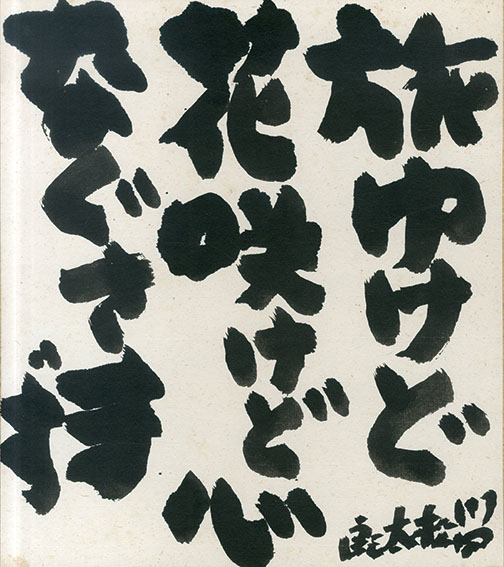 旅ゆけど
花咲けど心
なぐさまず